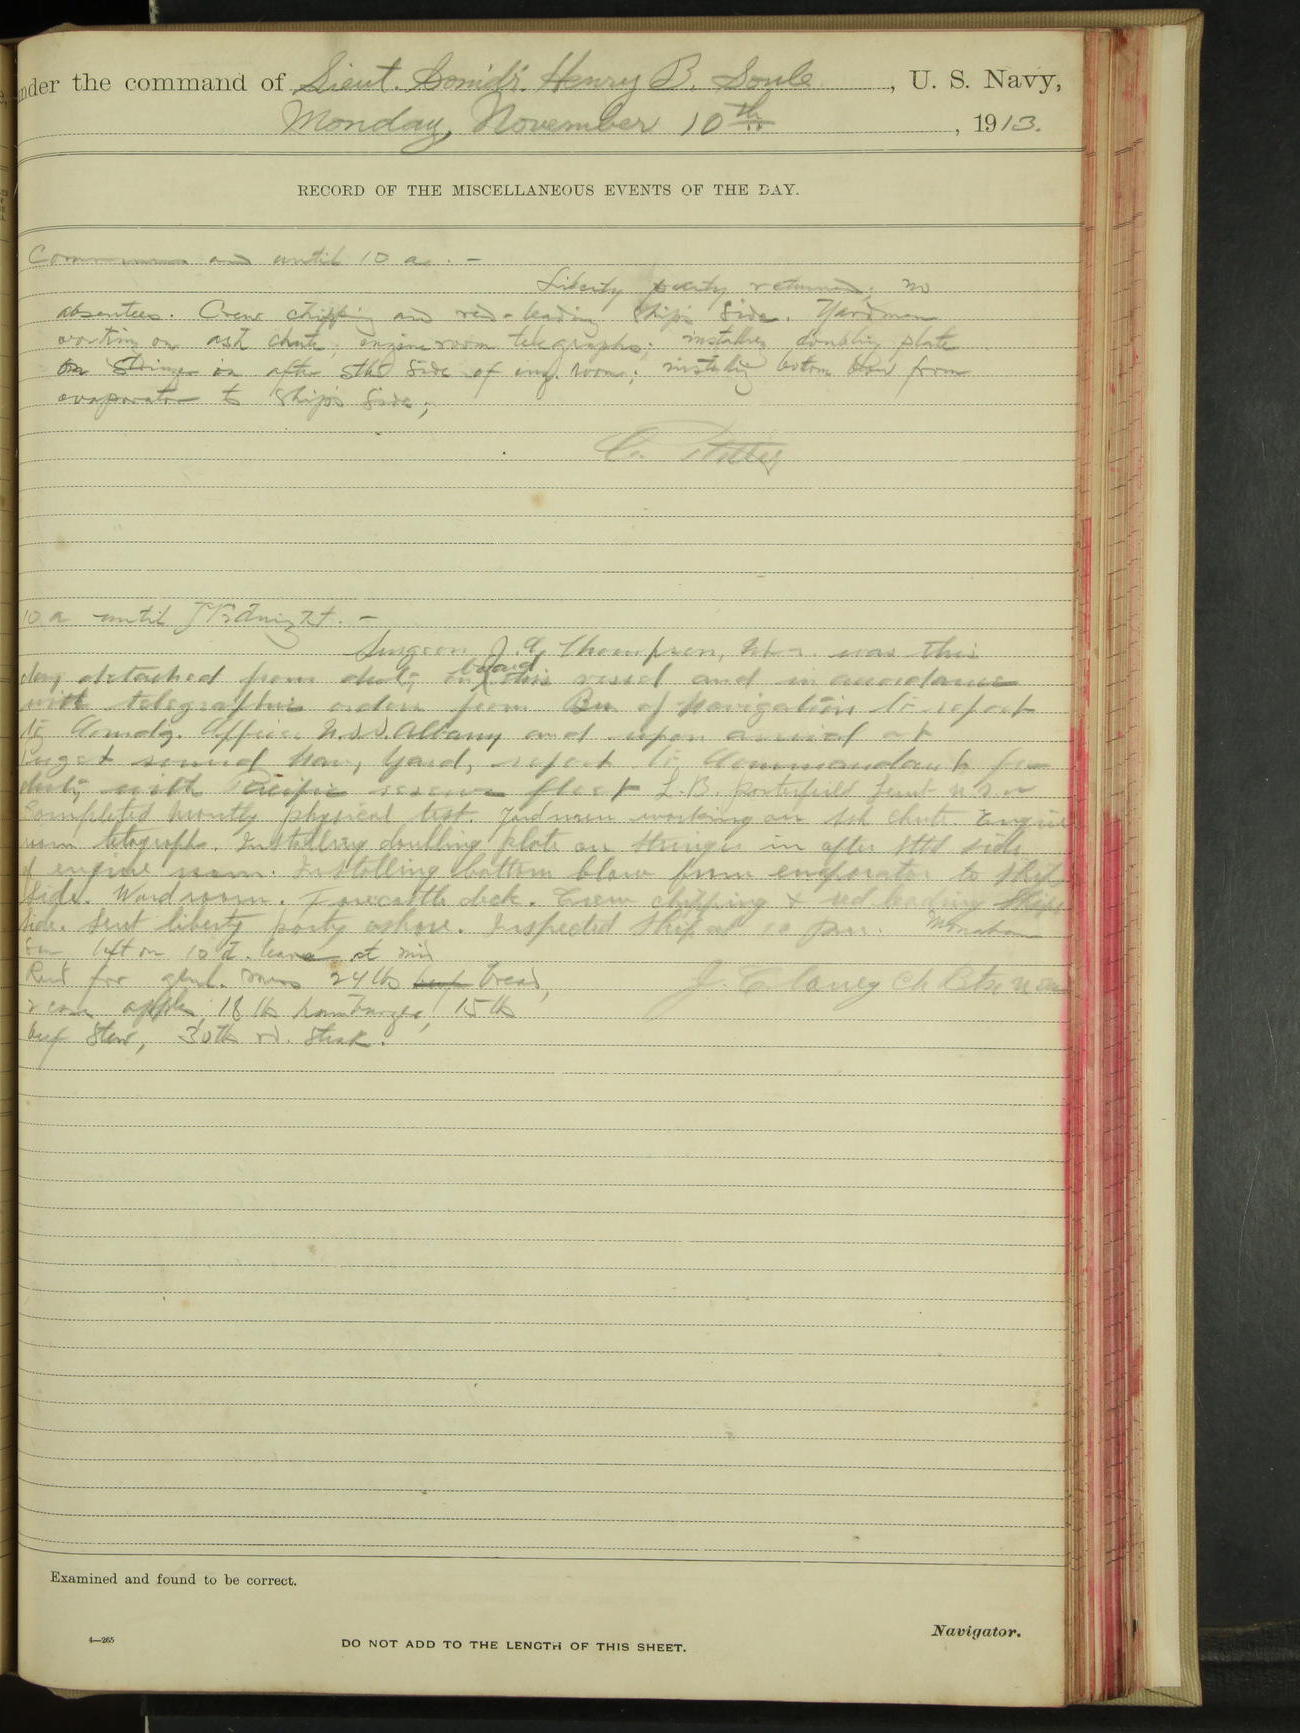 nder the command of Lieut. Comdr. Henry B. Soule, U. S. Navy,
Monday, November 10th, 1913.
RECORD OF THE MISCELLANEOUS EVENTS OF THE DAY.
Commences and until 10 a. -
Liberty party returned; no
absentees. Crew chipping and red-leading ship's side. Yardmen
working on ash chute; engine room telegraphs; installing doubling plate
on stringer in after stbd side of eng. room; installing bottom blow from
evaporator to ship's side;
10 a until Midnight. -
Surgeon J. C. Thompson, U.S.N. was this
day detached from duty on board this vessel and in accordance
with telegraphic orders from Bu of Navigation to report
to Comdg. Officer U.S.S. Albany and upon arrival at
Puget Sound Navy Yard, report to Commandant for
duty with Pacific reserve fleet. L.B. Porterfield Lieut U.S.N.
completed monthly physical test. Yardmen working on Ash chute. Engine
room telegraphs. Installing doubling plate on stringer in after stbd side
of engine room. Installing bottom blow from evaporator to ship
side. Wardroom. Forecastle deck. Crew chipping & red leading ships
side. Sent liberty party ashore. Inspected ship at 10 p.m. Monahan
left on 10 d. leave at mid
Recd for genl. mess 24 lbs beef bread,
2 cases apples, 18 lb hamburger, 15 lb
beef stew, 30 lb rd. steak.
J. Clancy Ch Btsn U.S.N.
Examined and found to be correct.
Navigator.
4—265
DO NOT ADD TO THE LENGTH OF THIS SHEET.